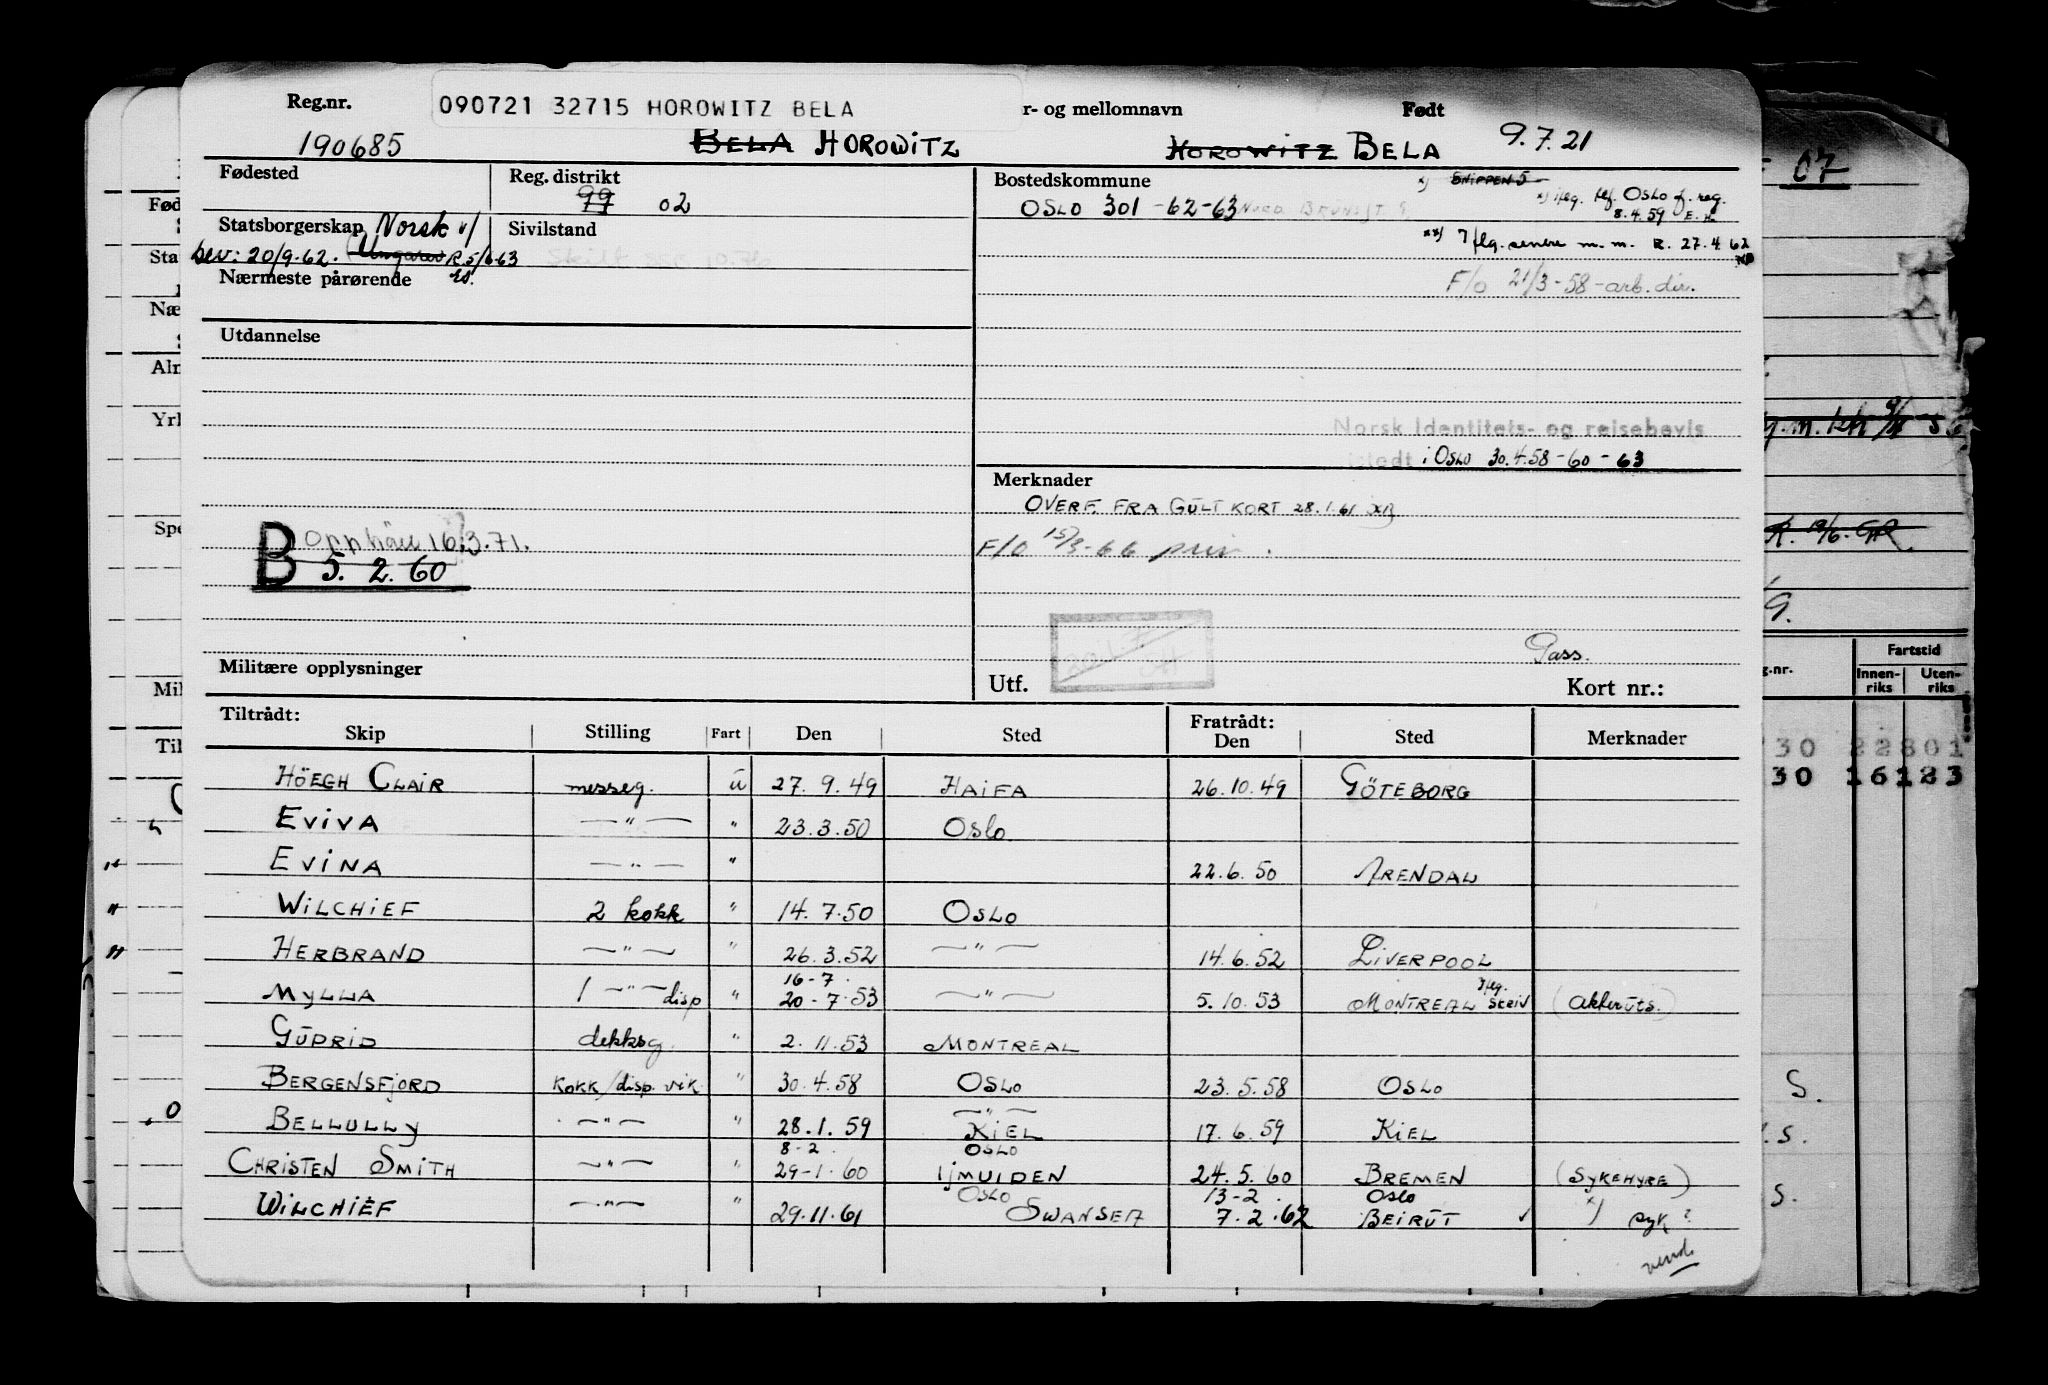 Reg.nr. 090721 32715 HOROWITZ BELA r- og mellomnavn Født
190685 BELA HOROWITZ HOROWITZ BELA 9.7.21
Fødested Reg. distrikt Bostedskommune
99 02 OSLO 301 -62-63
x) iflg. tlf. OSLO f. reg.
8.4.59
Statsborgerskap Norsk Sivilstand
xx) Iflg. senere m.m. R. 27.4.62
bev: 20/9.62. Ungarsk
Nærmeste pårørende
F/o 21/3-58-arb.dir.
Utdannelse
Norsk identitets- og reisebevis
i OSLO 30.4.58-60-63
Merknader
OVERF. FRA GULT KORT 28.1.61
B Opphäv 16.3.71.
F/O 15/3-66 priv.
5. 2. 60
Pass.
Militære opplysninger Utf. Kort nr.:
Tiltrådt: Fratrådt:
Skip Stilling Fart Den Sted Den Sted Merknader
HÖEGH CLAIR messeg. u 27.9.49 HAIFA 26.10.49 GÖTEBORG
EVIVA —"— " 23.3.50 OSLO
EVINA —"— " 22.6.50 ARENDAL
WILCHIEF 2 kokk " 14.7.50 OSLO
HERBRAND —"— " 26.3.52 —"— 14.6.52 LIVERPOOL
16-7. Iflg.
MYLLA 1 —"— disp " 20-7.53 —"— 5.10.53 MONTREAL SKRIV (Akteruts.)
GUDRID dekksg. " 2.11.53 MONTREAL
BERGENSFJORD KOKK/disp. vik " 30.4.58 OSLO 23.5.58 OSLO
—"—
BELLULLY —"— " 28.1.59 KIEL 17.6.59 KIEL
8-2. OSLO
CHRISTEN SMITH —"— " 29-1-60 IJMUIDEN 24.5.60 BREMEN (SYKEHYRE)
OSLO 13-2. OSLO x)
WILCHIEF —"— " 29.11.61 SWANSEA 7.2.62 BEIRUT ✓ syk?
vend.
07
Fartstid
Innen-riks Uten-riks
30 22801
30 16123
S.
S.
S.